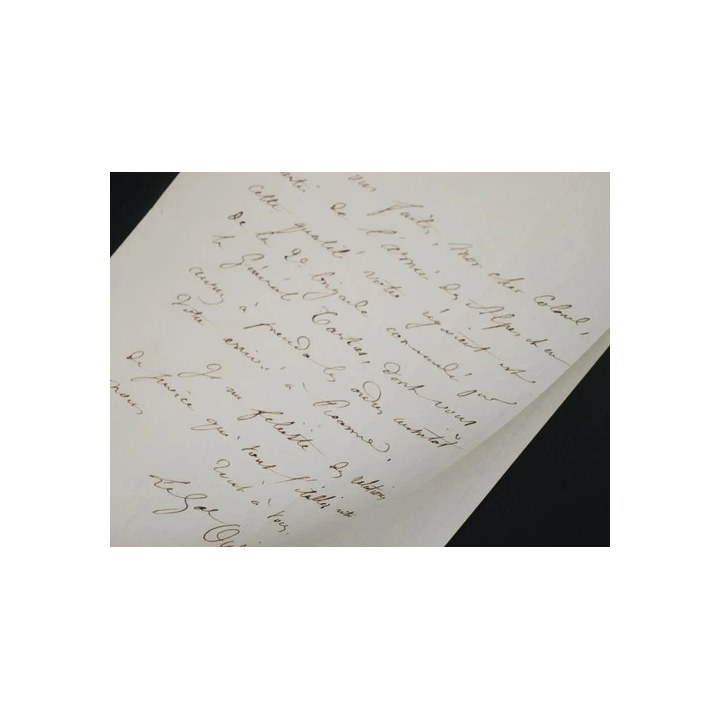 vous faites, mon cher Colonel,
partie de l'armée des Alpes et en
cette qualité votre régiment est
de la 2e brigade commandé par
le Général dont vous
aurez à prendre les ordres aussitôt
votre arrivée à Roanne.
Je me félicite des relations
de service que vont s'établir entre
nous
Tout à vous.
Le Gal